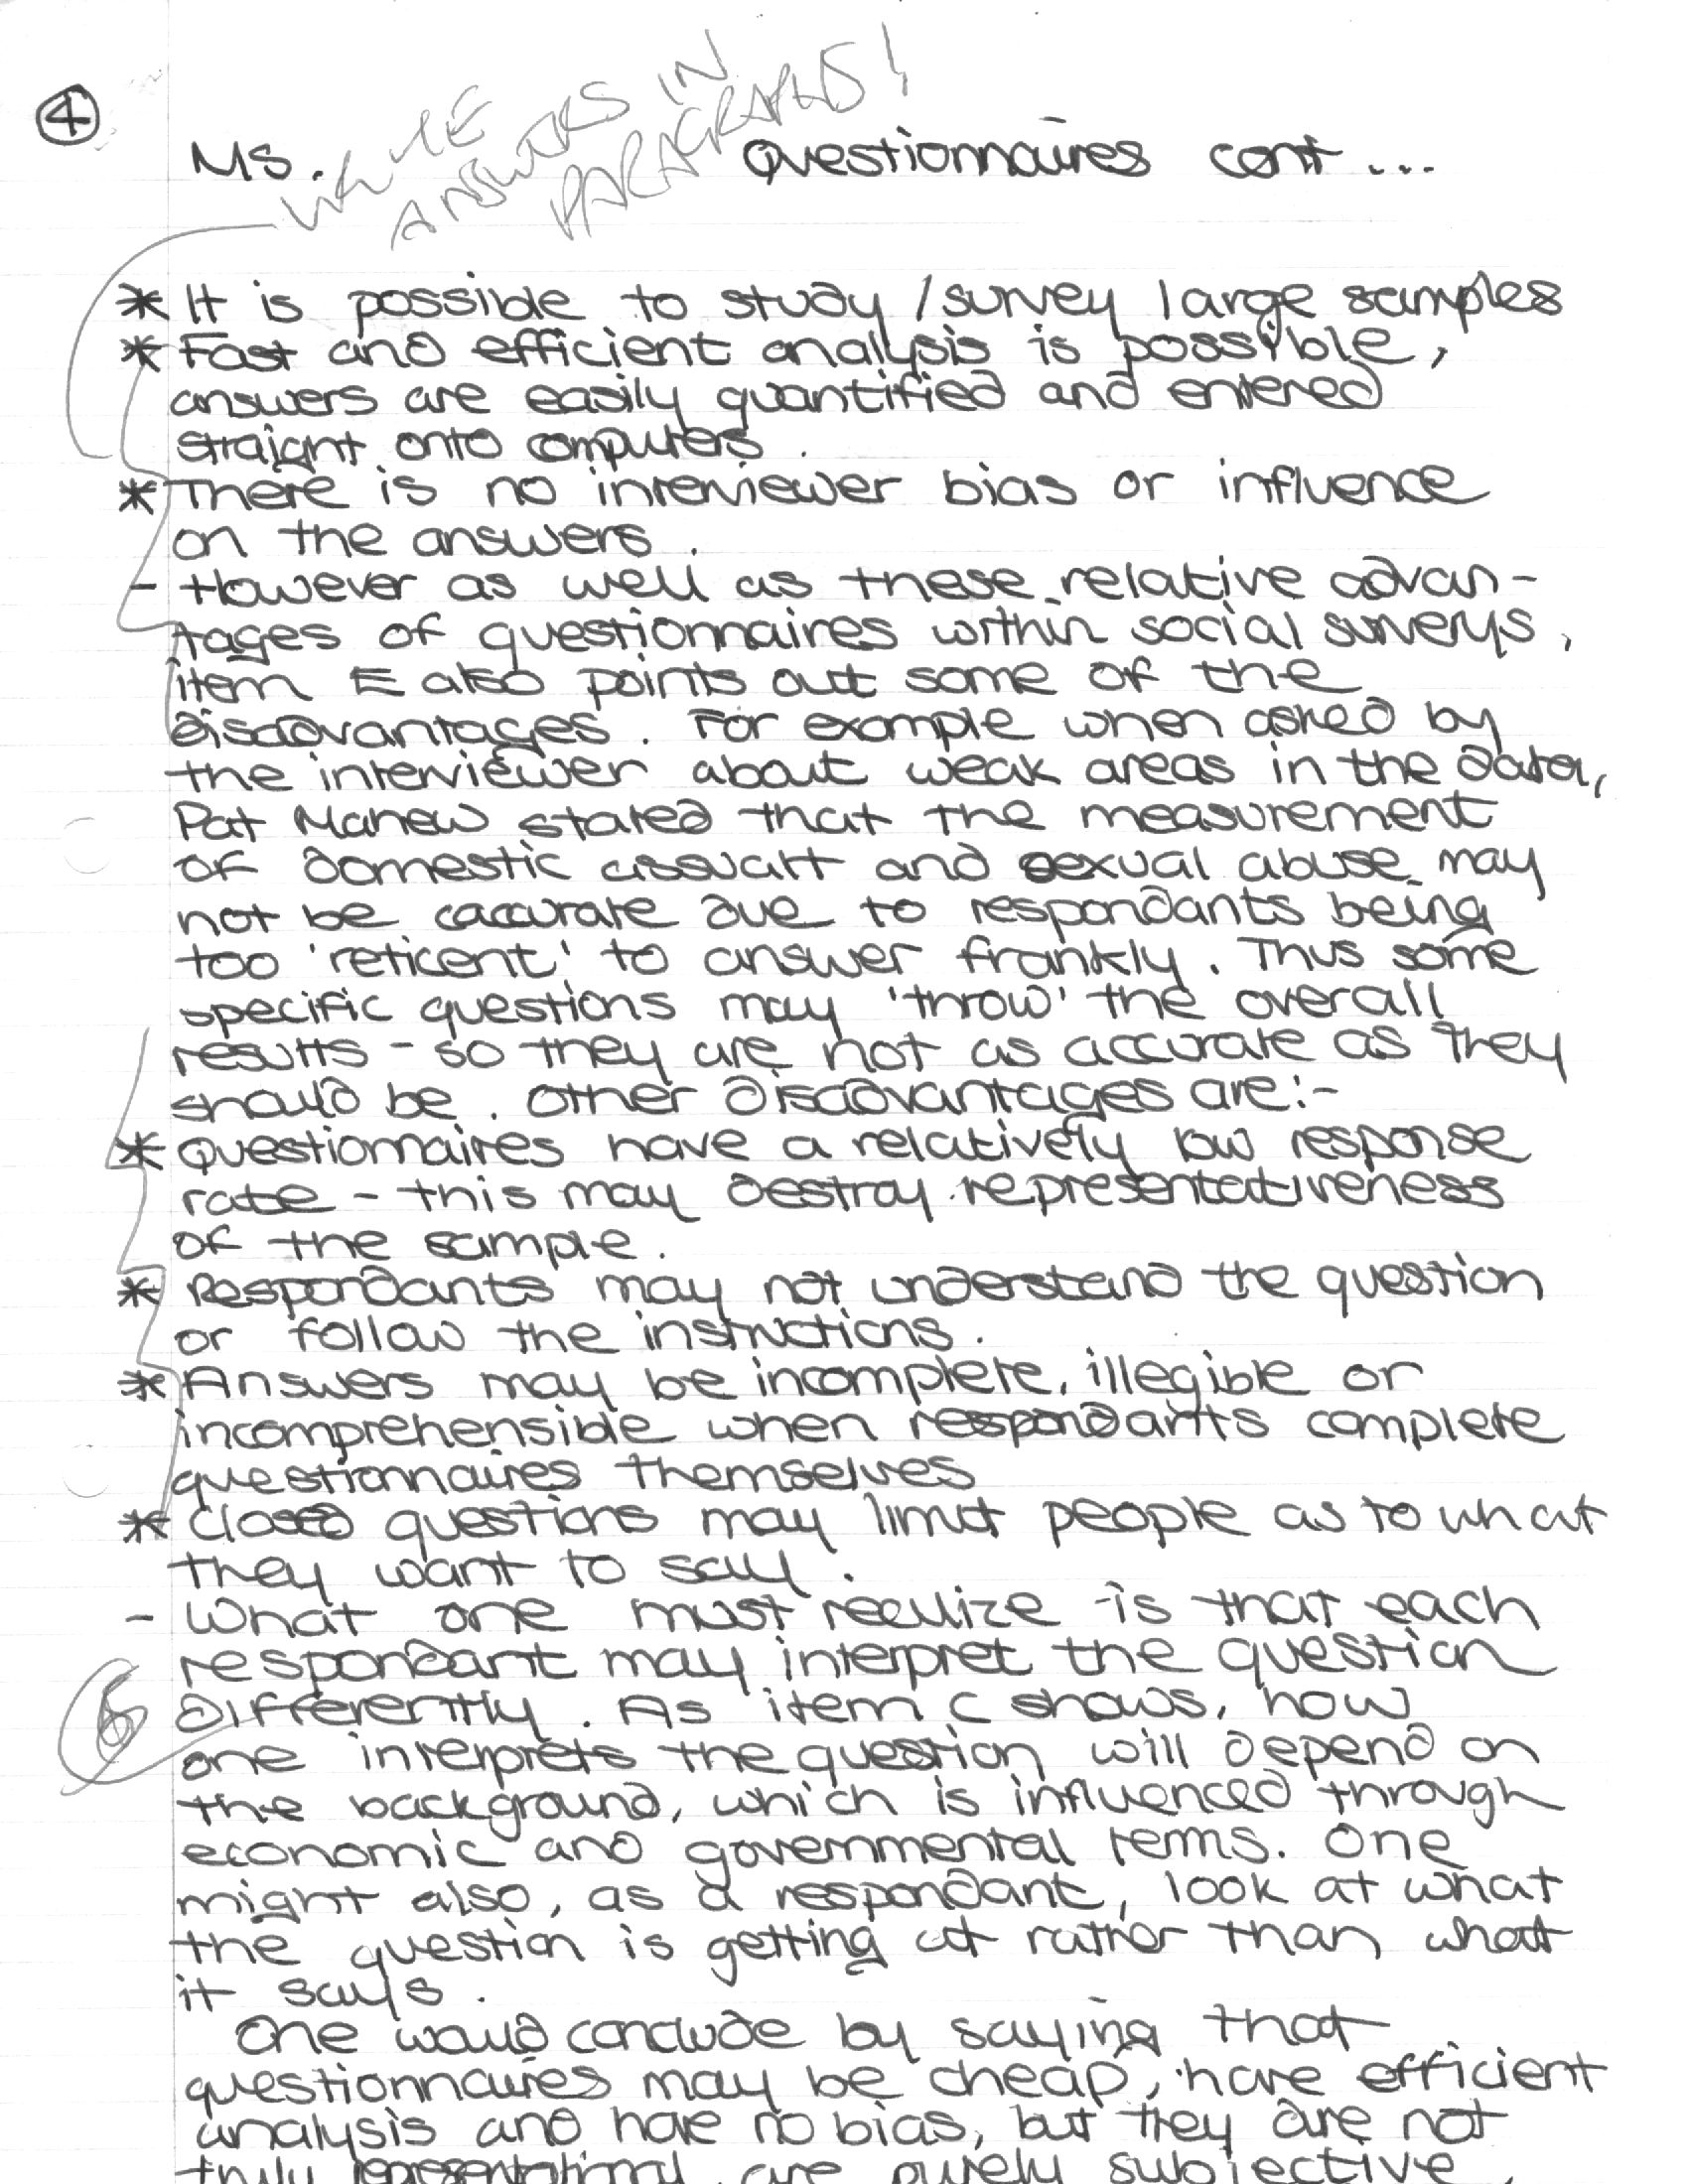 ④
WRITE
ANSWERS IN
PARAGRAPHS!
Ms. Questionnaires cont...
* It is possible to study/survey large samples
* Fast and efficient analysis is possible,
answers are easily quantified and entered
straight onto computers.
* There is no interviewer bias or influence
on the answers.
- However as well as these relative advan-
tages of questionnaires within social surverys,
item E also points out some of the
disadvantages. For example when asked by
the interviewer about weak areas in the data,
Pat Mahew stated that the measurement
of domestic assualt and sexual abuse may
not be accurate due to respondants being
too 'reticent' to answer frankly. Thus some
specific questions may 'throw' the overall
results - so they are not as accurate as they
should be. Other disadvantages are:-
* Questionnaires have a relatively low response
rate - this may destroy representativeness
of the sample.
* Respondants may not understand the question
or follow the instructions.
* Answers may be incomplete, illegible or
incomprehensible when respondants complete
questionnaires themselves
* Closed questions may limit people as to what
they want to say.
- What one must realize is that each
respondant may interpret the question
differently. As item C shows, how
one interprets the question will depend on
the background, which is influenced through
economic and governmental terms. One
might also, as a respondant, look at what
the question is getting at rather than what
it says.
One would conclude by saying that
questionnaires may be cheap, have efficient
analysis and have no bias, but they are not
truly representational, are purely subjective